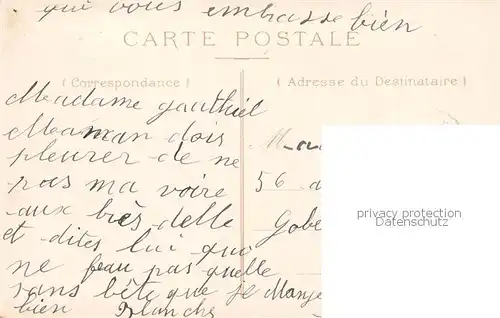 qui vous embrasse bien
CARTE POSTALE
(Correspondance)
(Adresse du Destinataire)
Madame gauthiel
Maman dois
pleurer de ne
pas ma voire
aux brès delle
et dites lui qui
ne feau pas quelle
sans bête que je Mange
bien Blanche
56
Gobe
privacy protection
Datenschutz